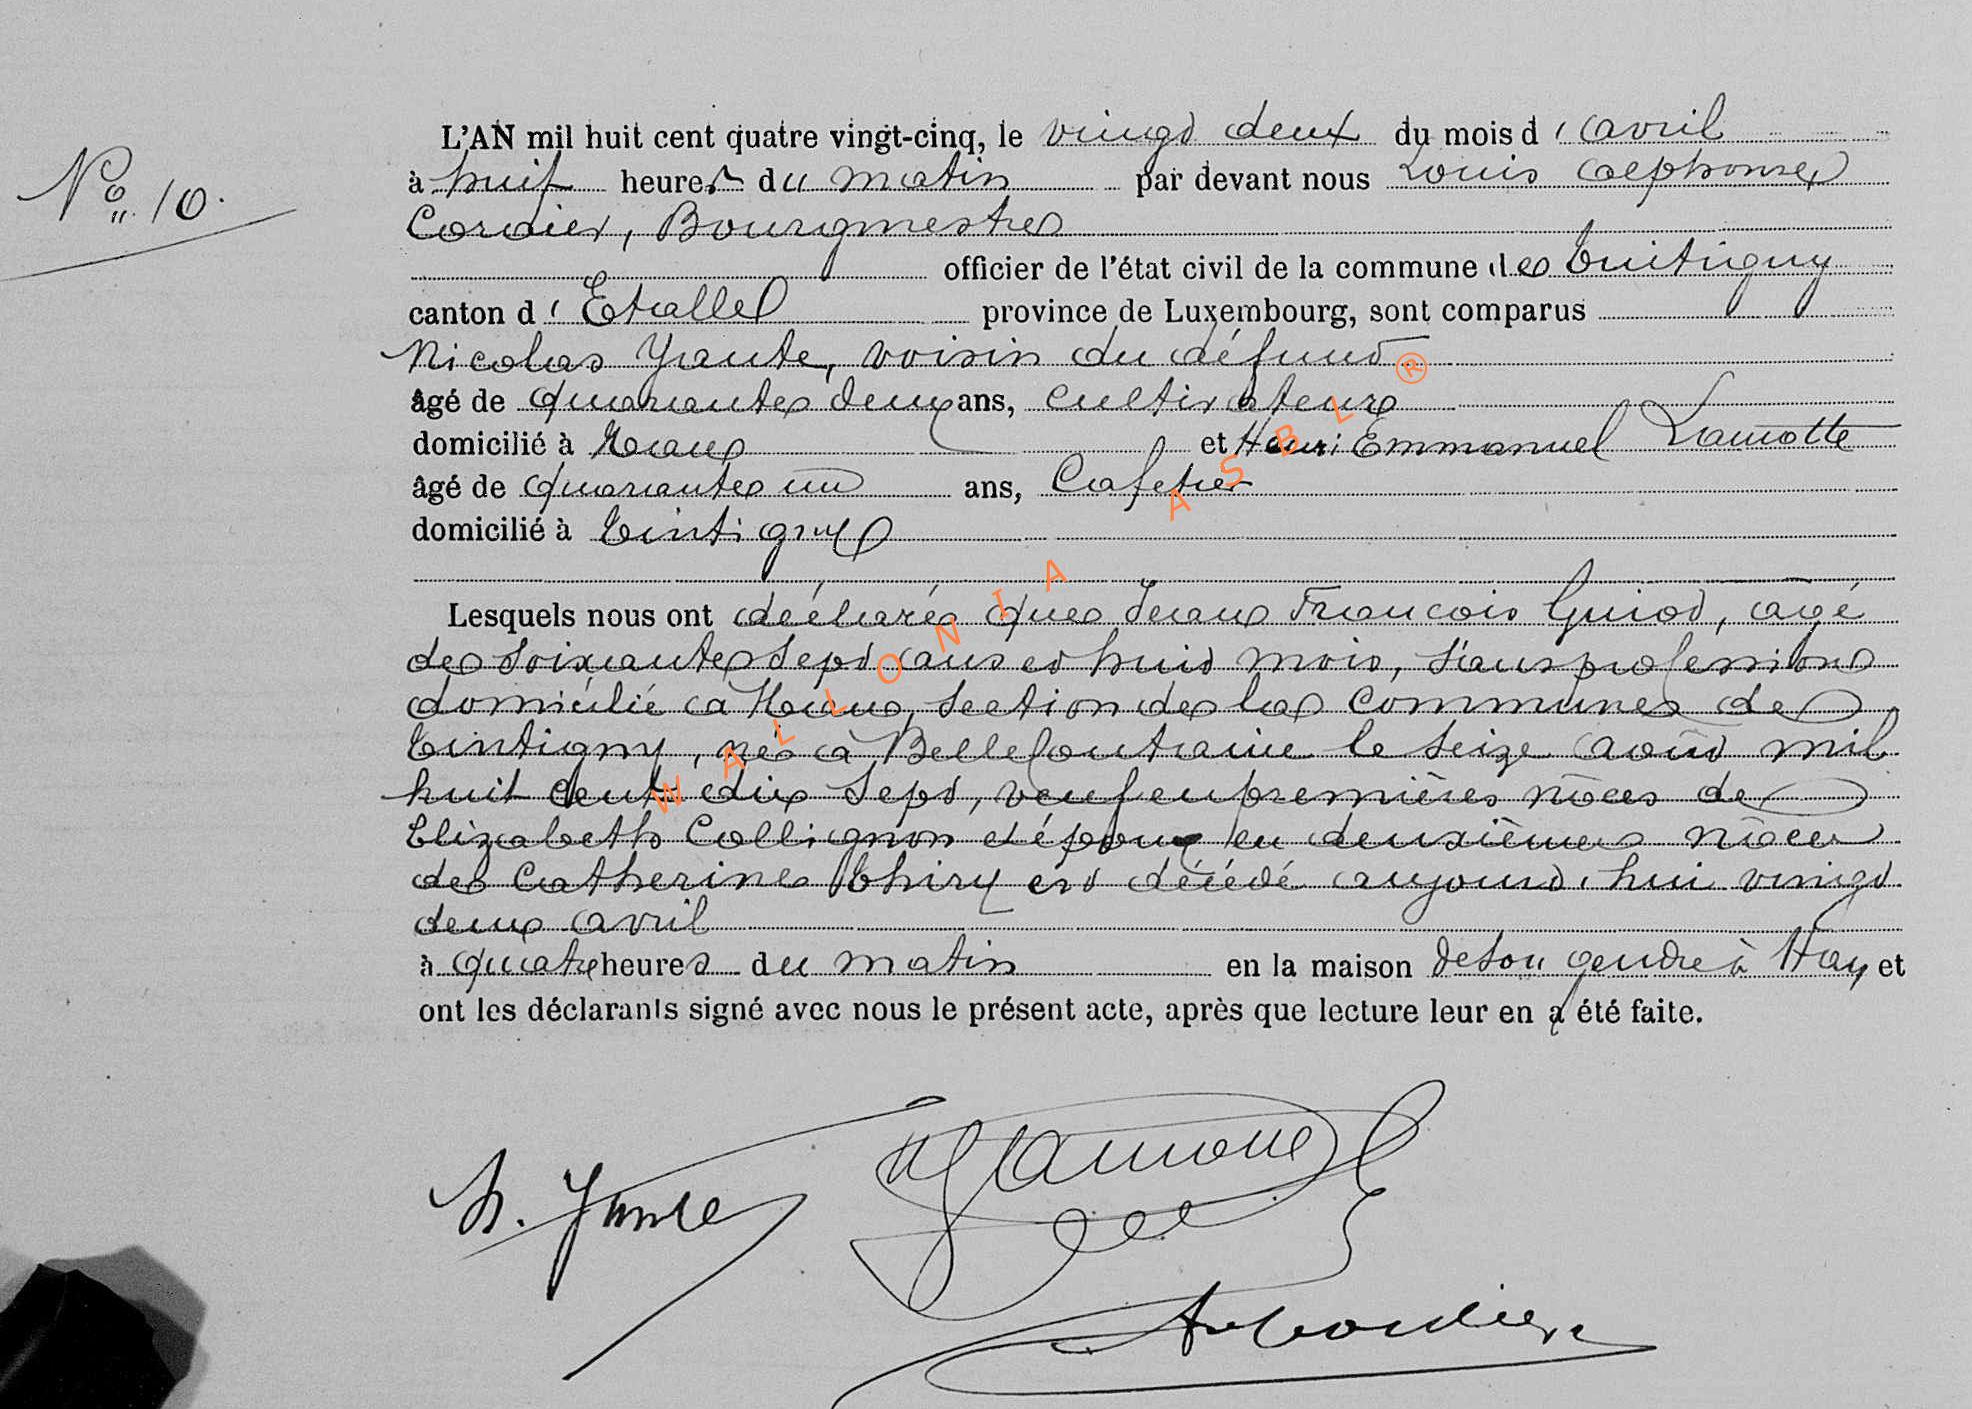 N° 10.
L'AN mil huit cent quatre vingt-cinq, le vingt deux du mois d'avril
à huit heures du matin par devant nous Louis Alphonse
Cordier, Bourgmestre
officier de l'état civil de la commune de Tintigny
canton d'Etalle province de Luxembourg, sont comparus
Nicolas Yante, voisin du défunt
âgé de quarante deux ans, cultivateur
domicilié à Han et Henri Emmanuel Lamotte
âgé de quarante un ans, Cafetier
domicilié à Tintigny
Lesquels nous ont déclaré que Jean François Guiot, agé
de soixante sept ans et huit mois, sans profession
domicilié à Han, section de la commune de
Tintigny, né à Bellefontaine le seize août mil
huit cent dix sept, veuf en premières noces de
Elizabeth Collignon et époux en deuxièmes noces
de Catherine Thiry est décédé aujourd'hui vingt
deux avril
à quatre heures du matin en la maison de son gendre à Han, et
ont les déclarants signé avec nous le présent acte, après que lecture leur en a été faite.
N. Yante
Lamotte
Cordier
WALLONIA ASBL ®